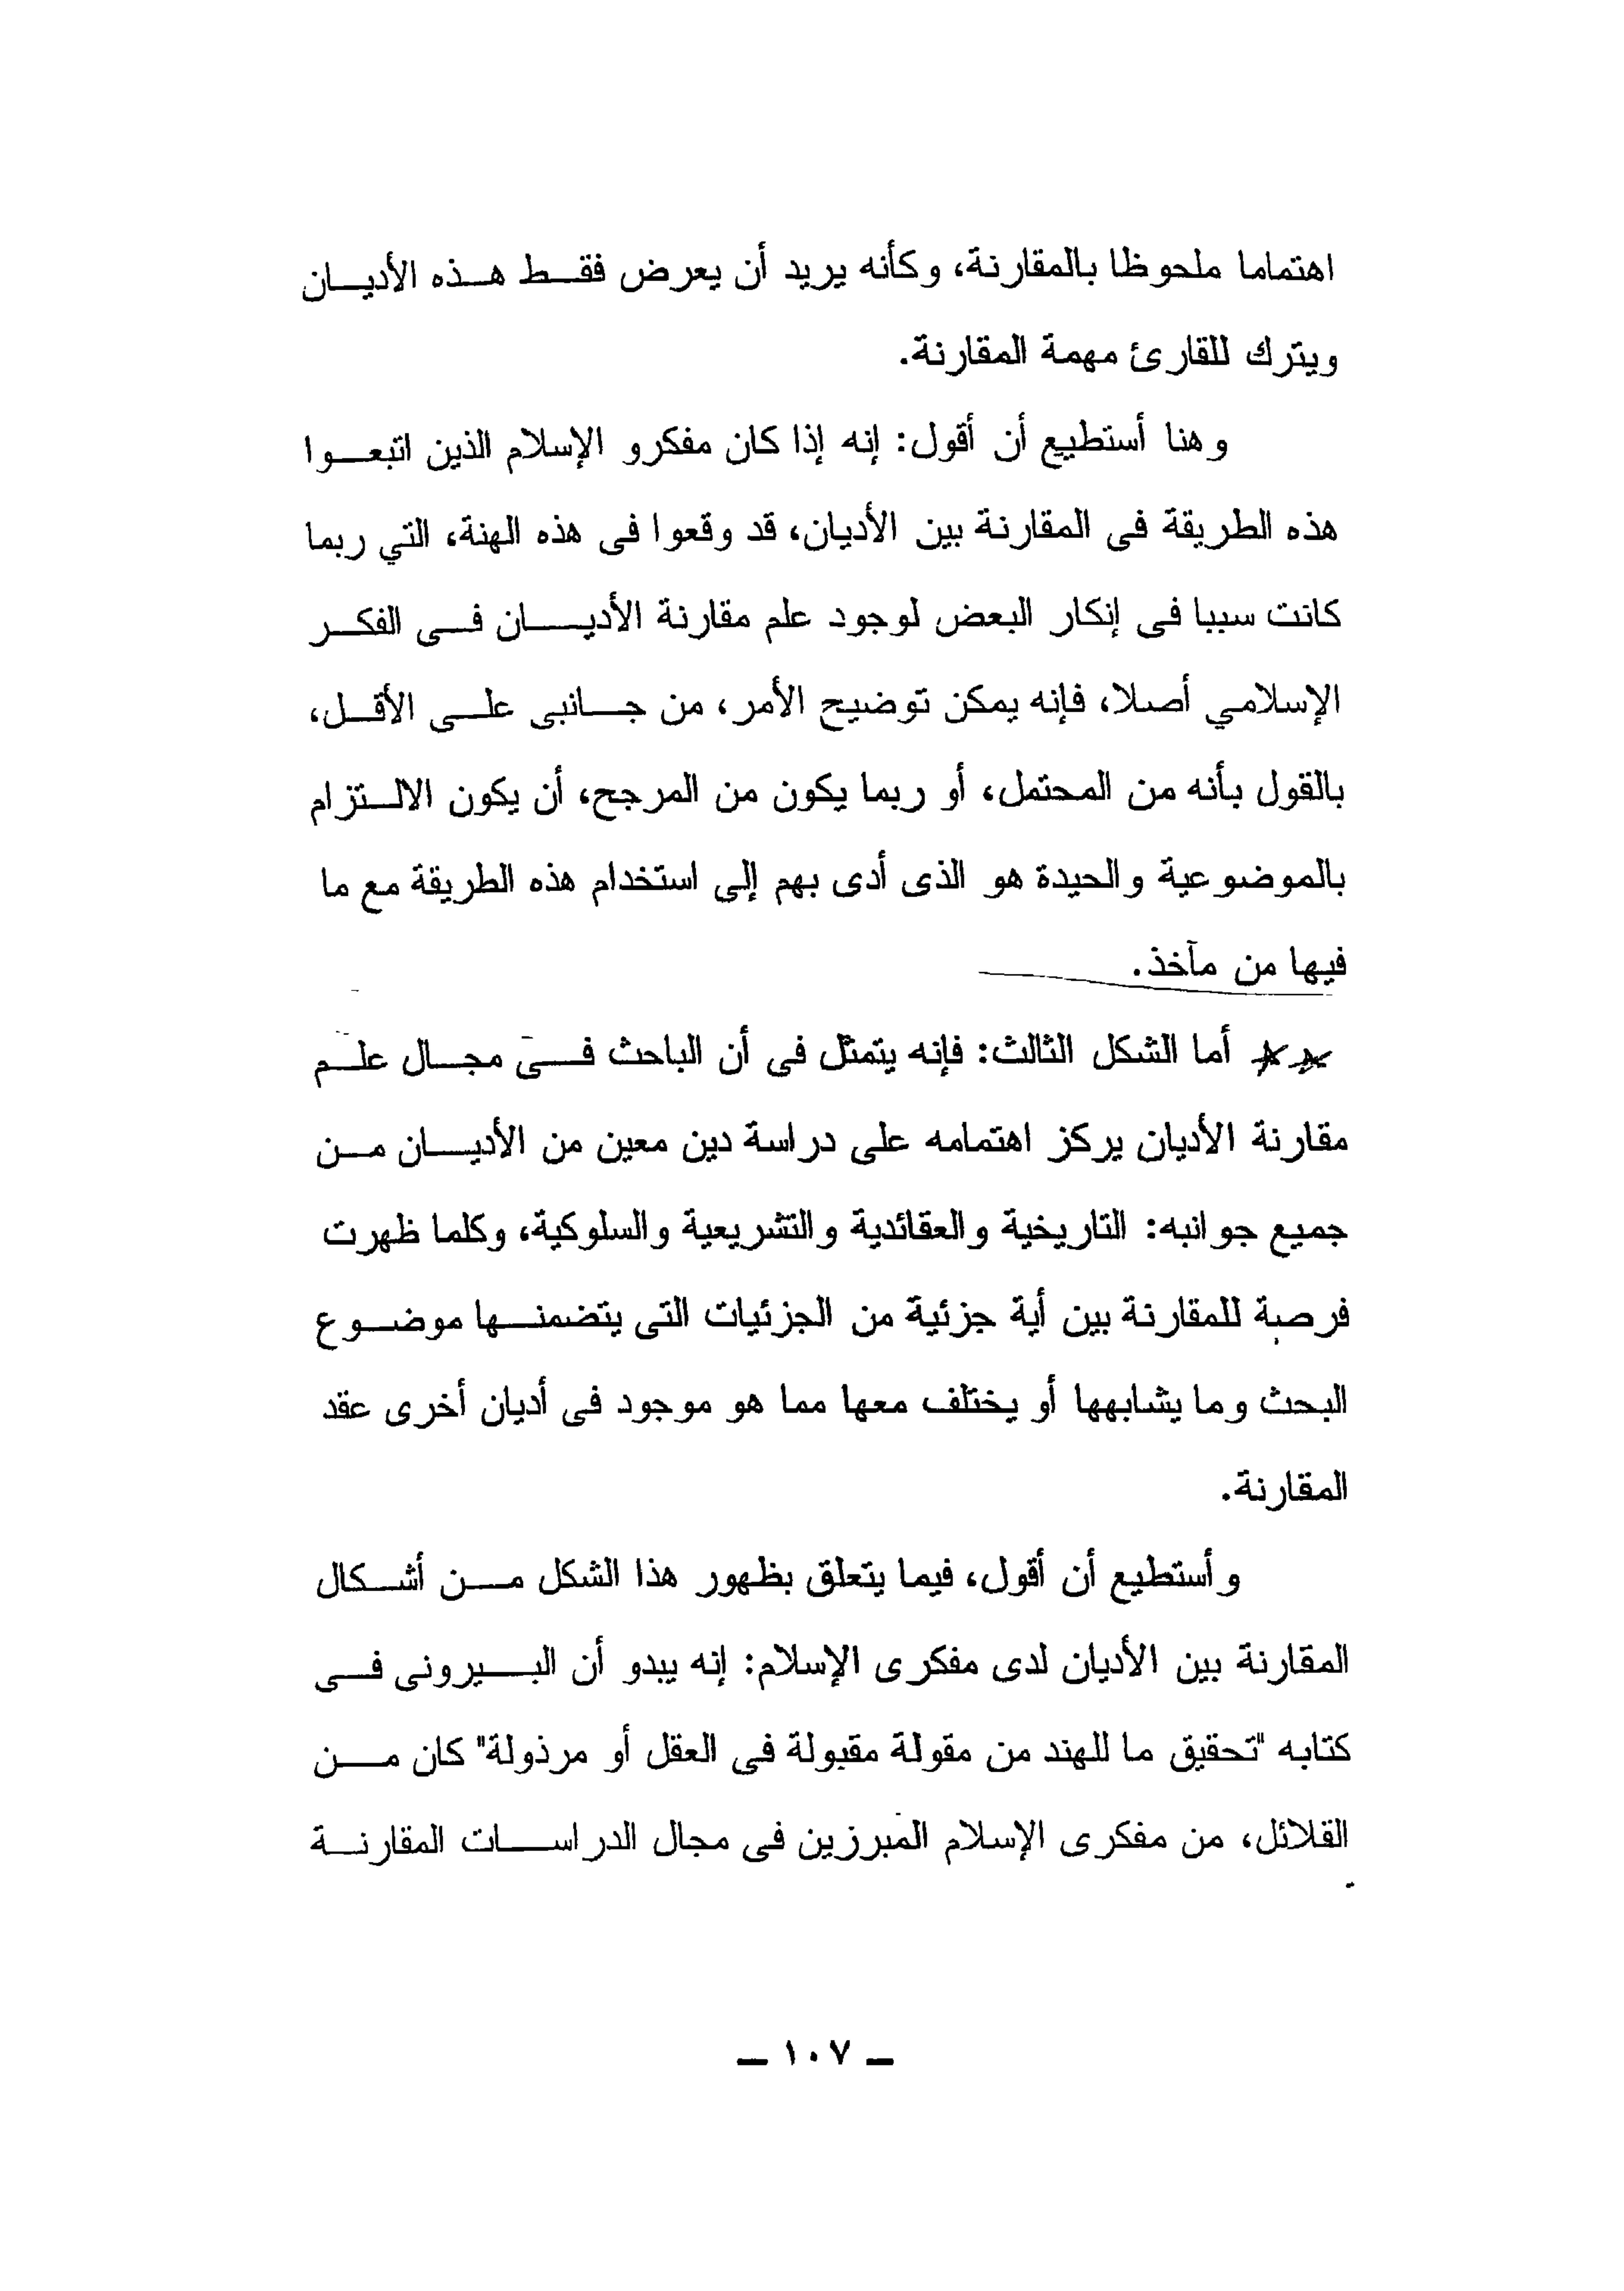 اهتماما ملحوظا بالمقارنة، وكأنه يريد أن يعرض فقط هذه الأديان
ويترك للقارئ مهمة المقارنة.
وهنا أستطيع أن أقول: إنه إذا كان مفكرو الإسلام الذين اتبعوا
هذه الطريقة فى المقارنة بين الأديان، قد وقعوا فى هذه الهنة، التي ربما
كانت سببا فى إنكار البعض لوجود علم مقارنة الأديان فى الفكر
الإسلامي أصلا، فإنه يمكن توضيح الأمر، من جانبى على الأقل،
بالقول بأنه من المحتمل، أو ربما يكون من المرجح، أن يكون الالتزام
بالموضوعية والحيدة هو الذى أدى بهم إلى استخدام هذه الطريقة مع ما
فيها من مآخذ.
** أما الشكل الثالث: فإنه يتمثل فى أن الباحث فى مجال علم
مقارنة الأديان يركز اهتمامه على دراسة دين معين من الأديان من
جميع جوانبه: التاريخية والعقائدية والتشريعية والسلوكية، وكلما ظهرت
فرصة للمقارنة بين أية جزئية من الجزئيات التى يتضمنها موضوع
البحث وما يشابهها أو يختلف معها مما هو موجود فى أديان أخرى عقد
المقارنة.
وأستطيع أن أقول، فيما يتعلق بظهور هذا الشكل من أشكال
المقارنة بين الأديان لدى مفكرى الإسلام: إنه يبدو أن البيرونى فى
كتابه "تحقيق ما للهند من مقولة مقبولة فى العقل أو مرذولة" كان من
القلائل، من مفكرى الإسلام المبرزين فى مجال الدراسات المقارنة
ـ ١٠٧ ـ